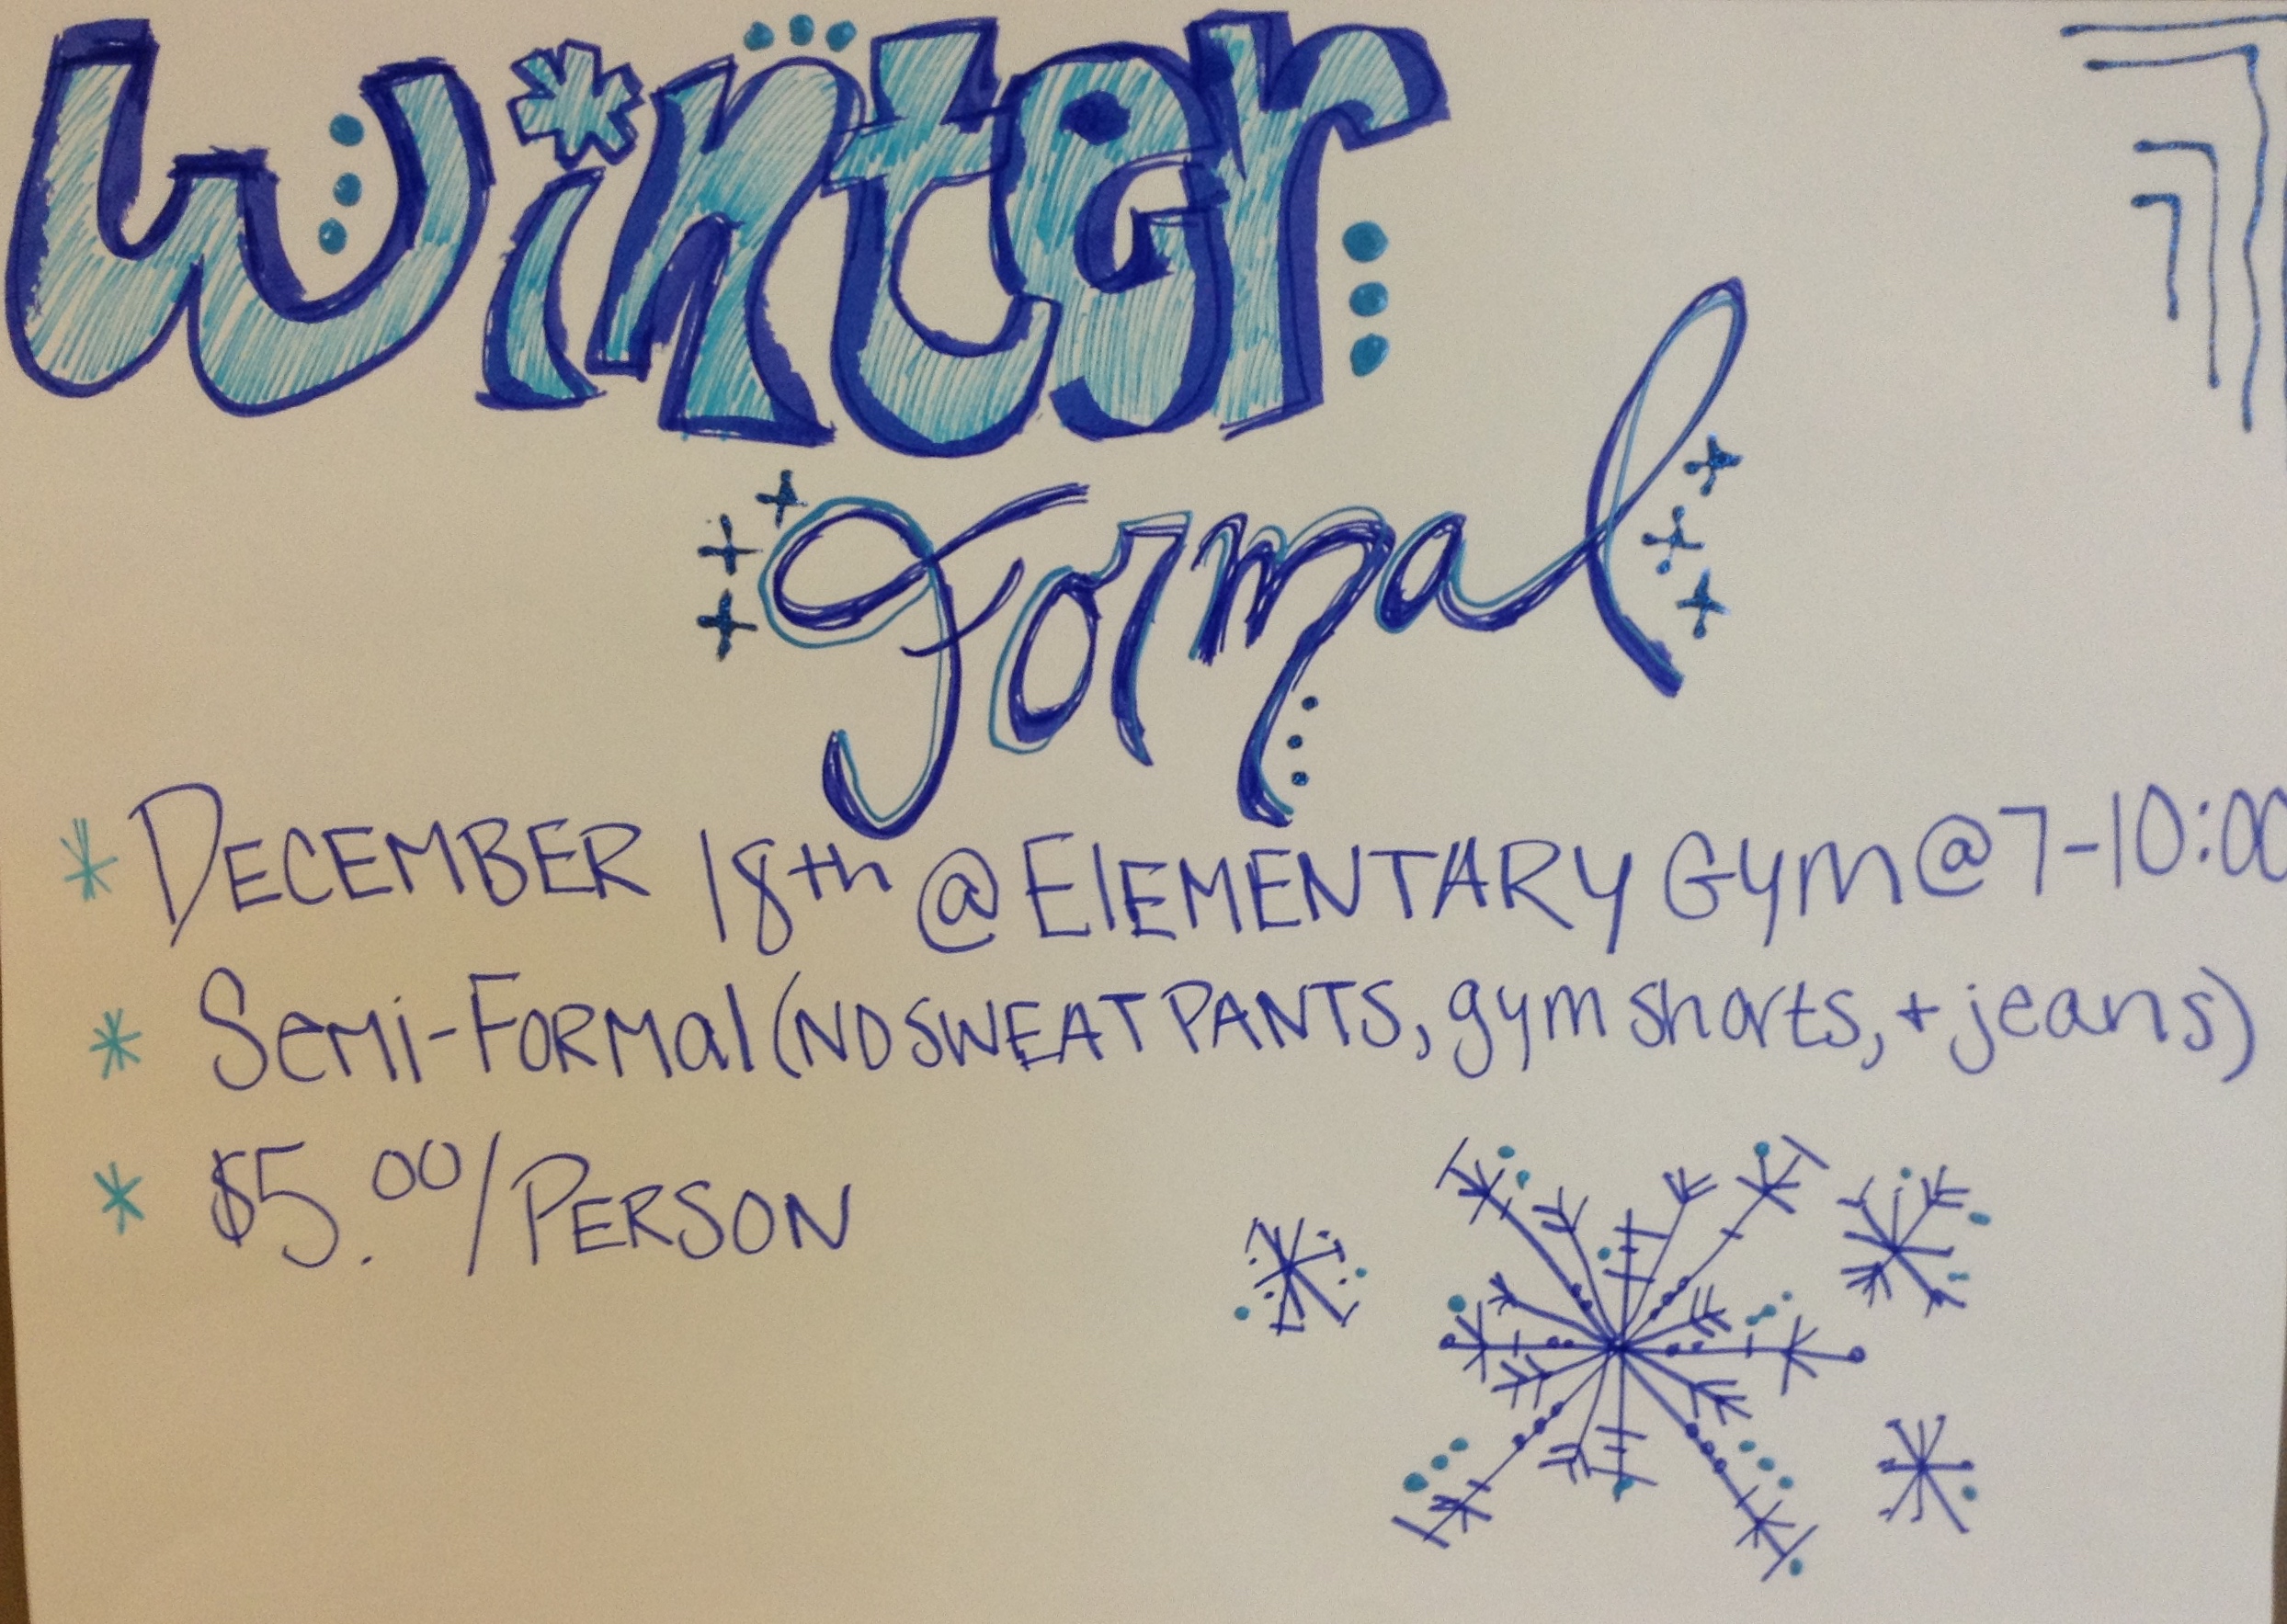 Winter
Formal
* DECEMBER 18th @ ElEMENTARY GyM @ 7-10:00
* SeMi-FORMal (NO SWEATPANTS, gym shorts, + jeans)
* $5.00/PERSON